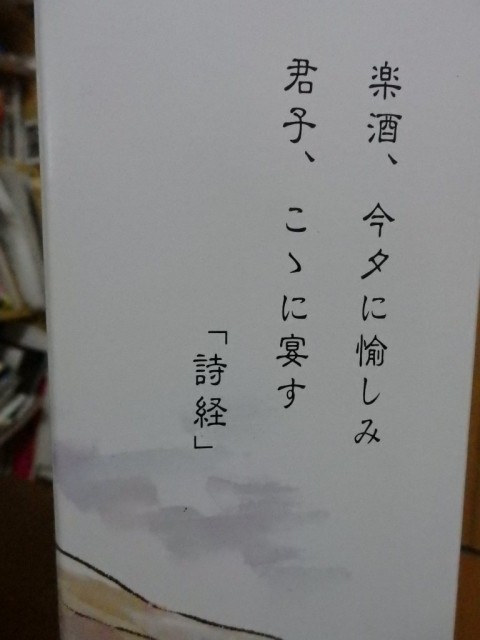 楽酒、今夕に愉しみ
君子、こゝに宴す
「詩経」